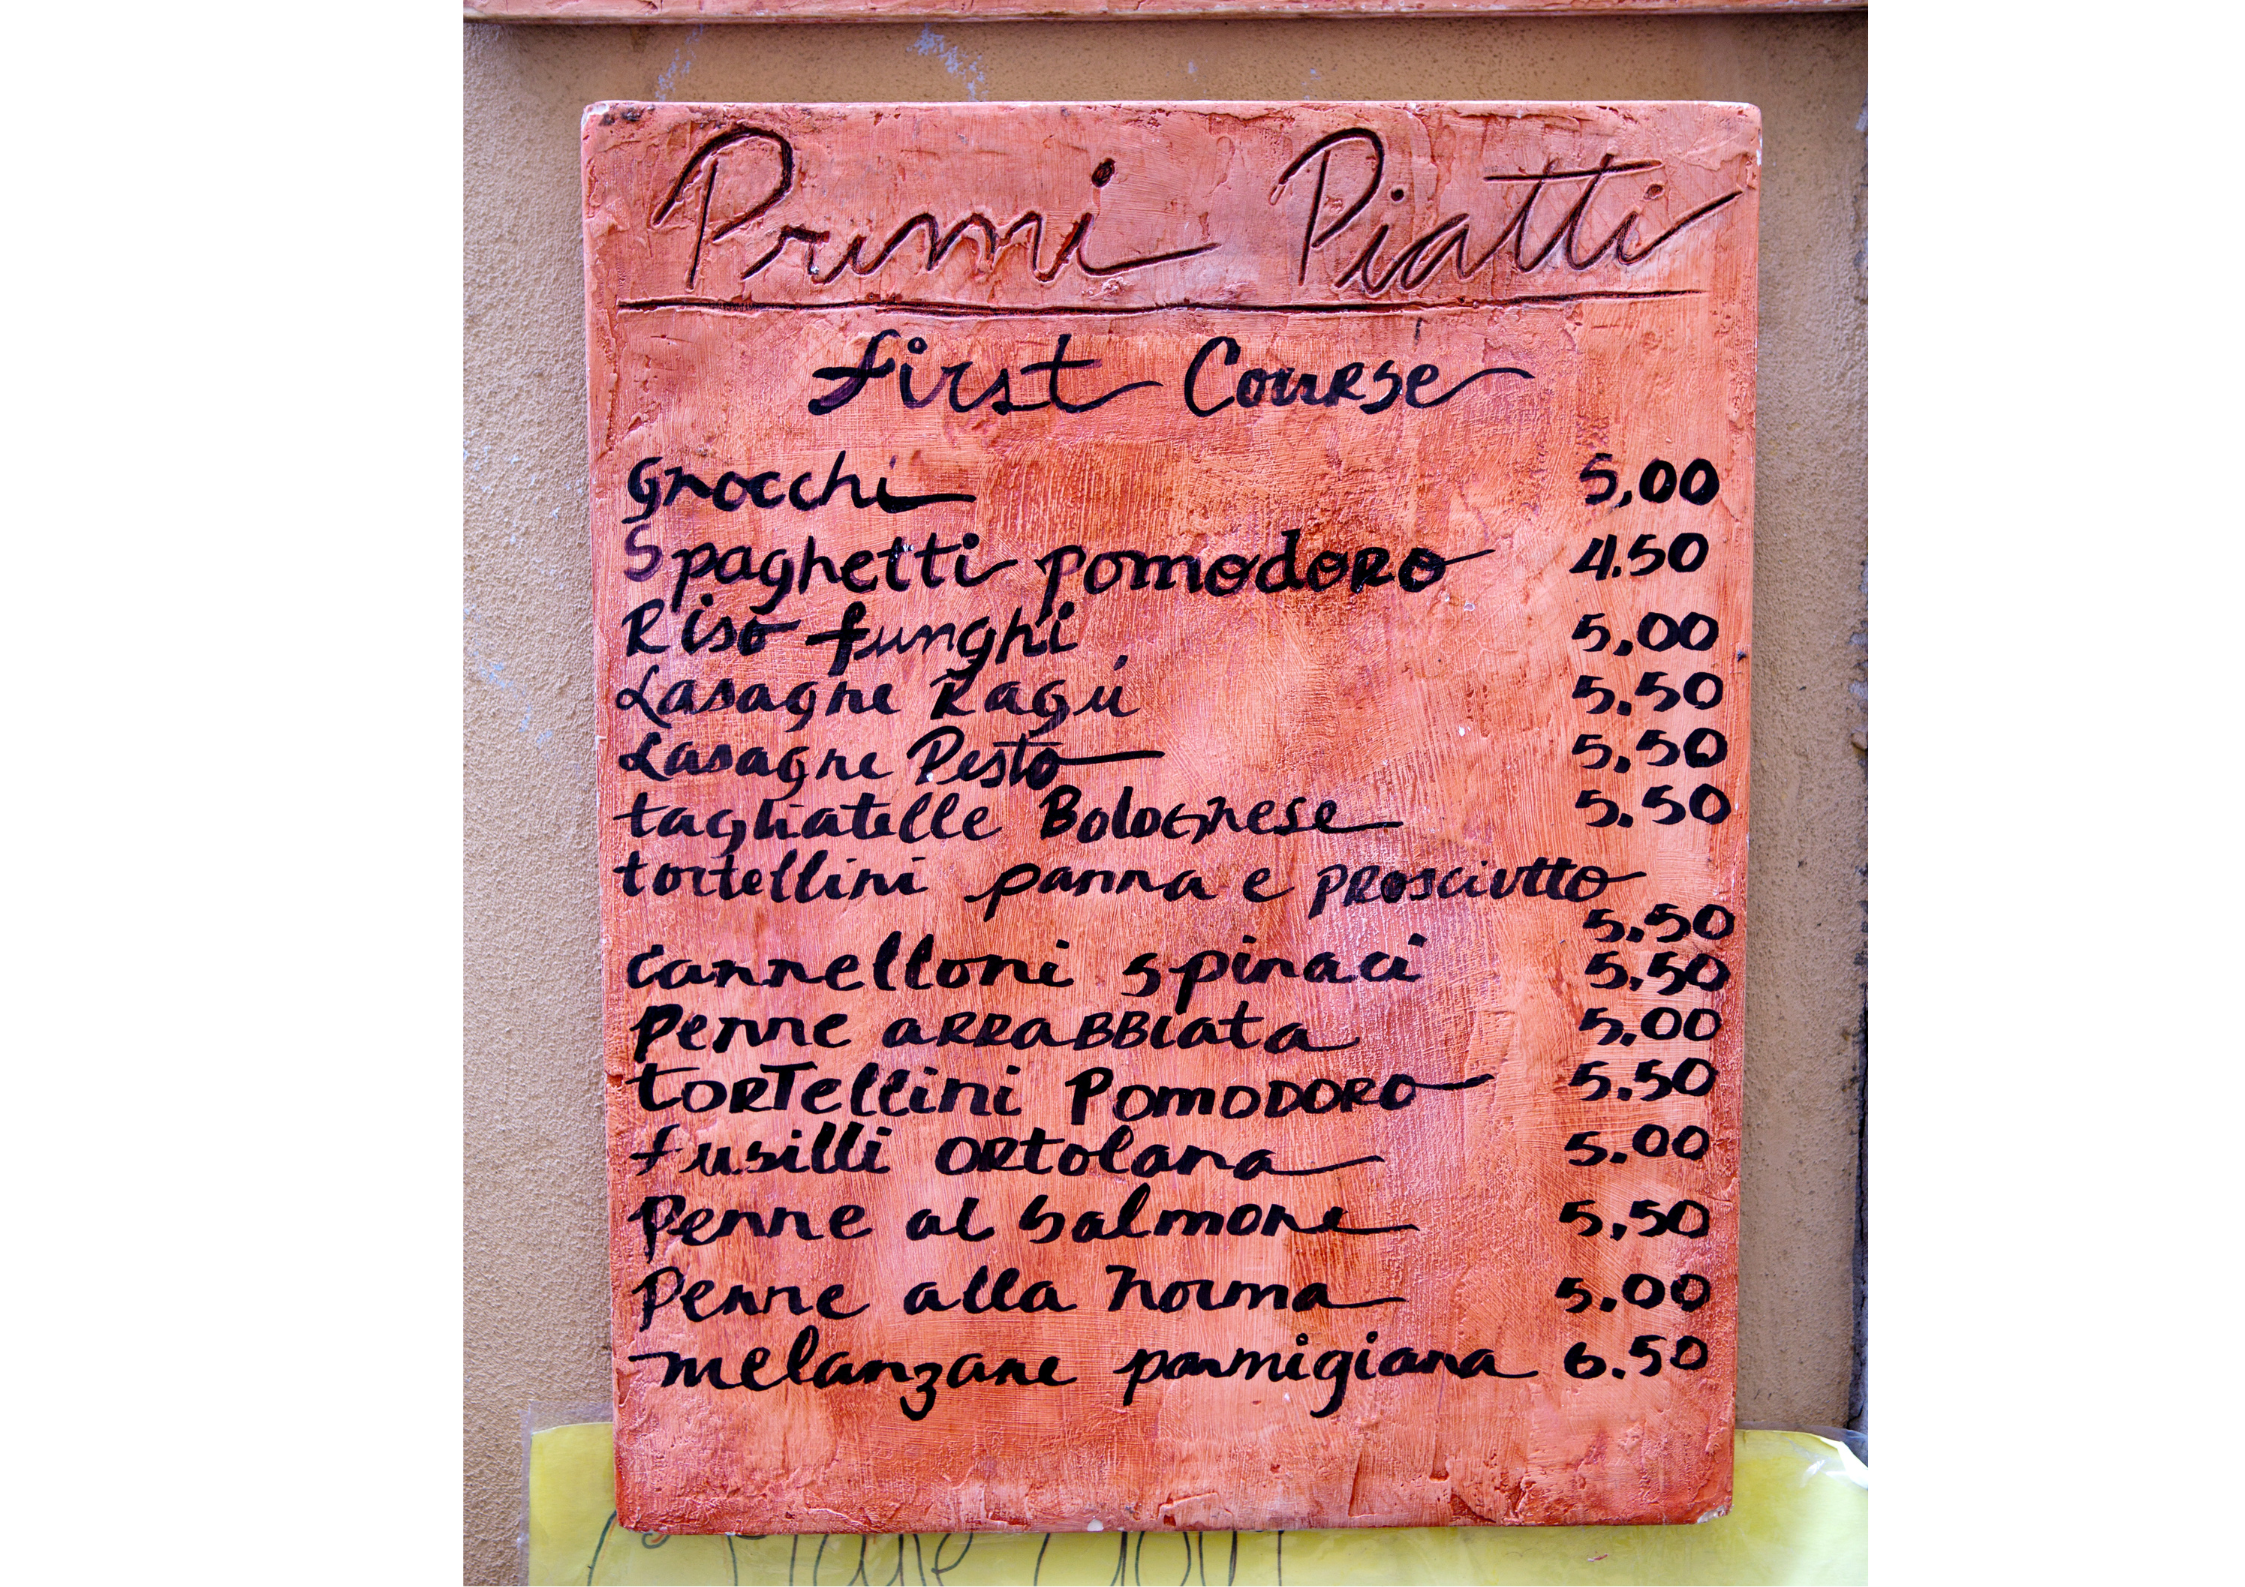 Primi Piatti
First Course
Gnocchi 5,00
Spaghetti pomodoro 4.50
Riso funghi 5,00
Lasagne Ragú 5.50
Lasagne Pesto 5,50
tagliatelle Bolognese 5.50
tortellini panna e prosciutto
5.50
cannelloni spinaci 5,50
Penne arrabbiata 5.00
tortellini Pomodoro 5.50
fusilli ortolana 5.00
Penne al Salmone 5,50
Penne alla Norma 5.00
melanzane parmigiana 6.50